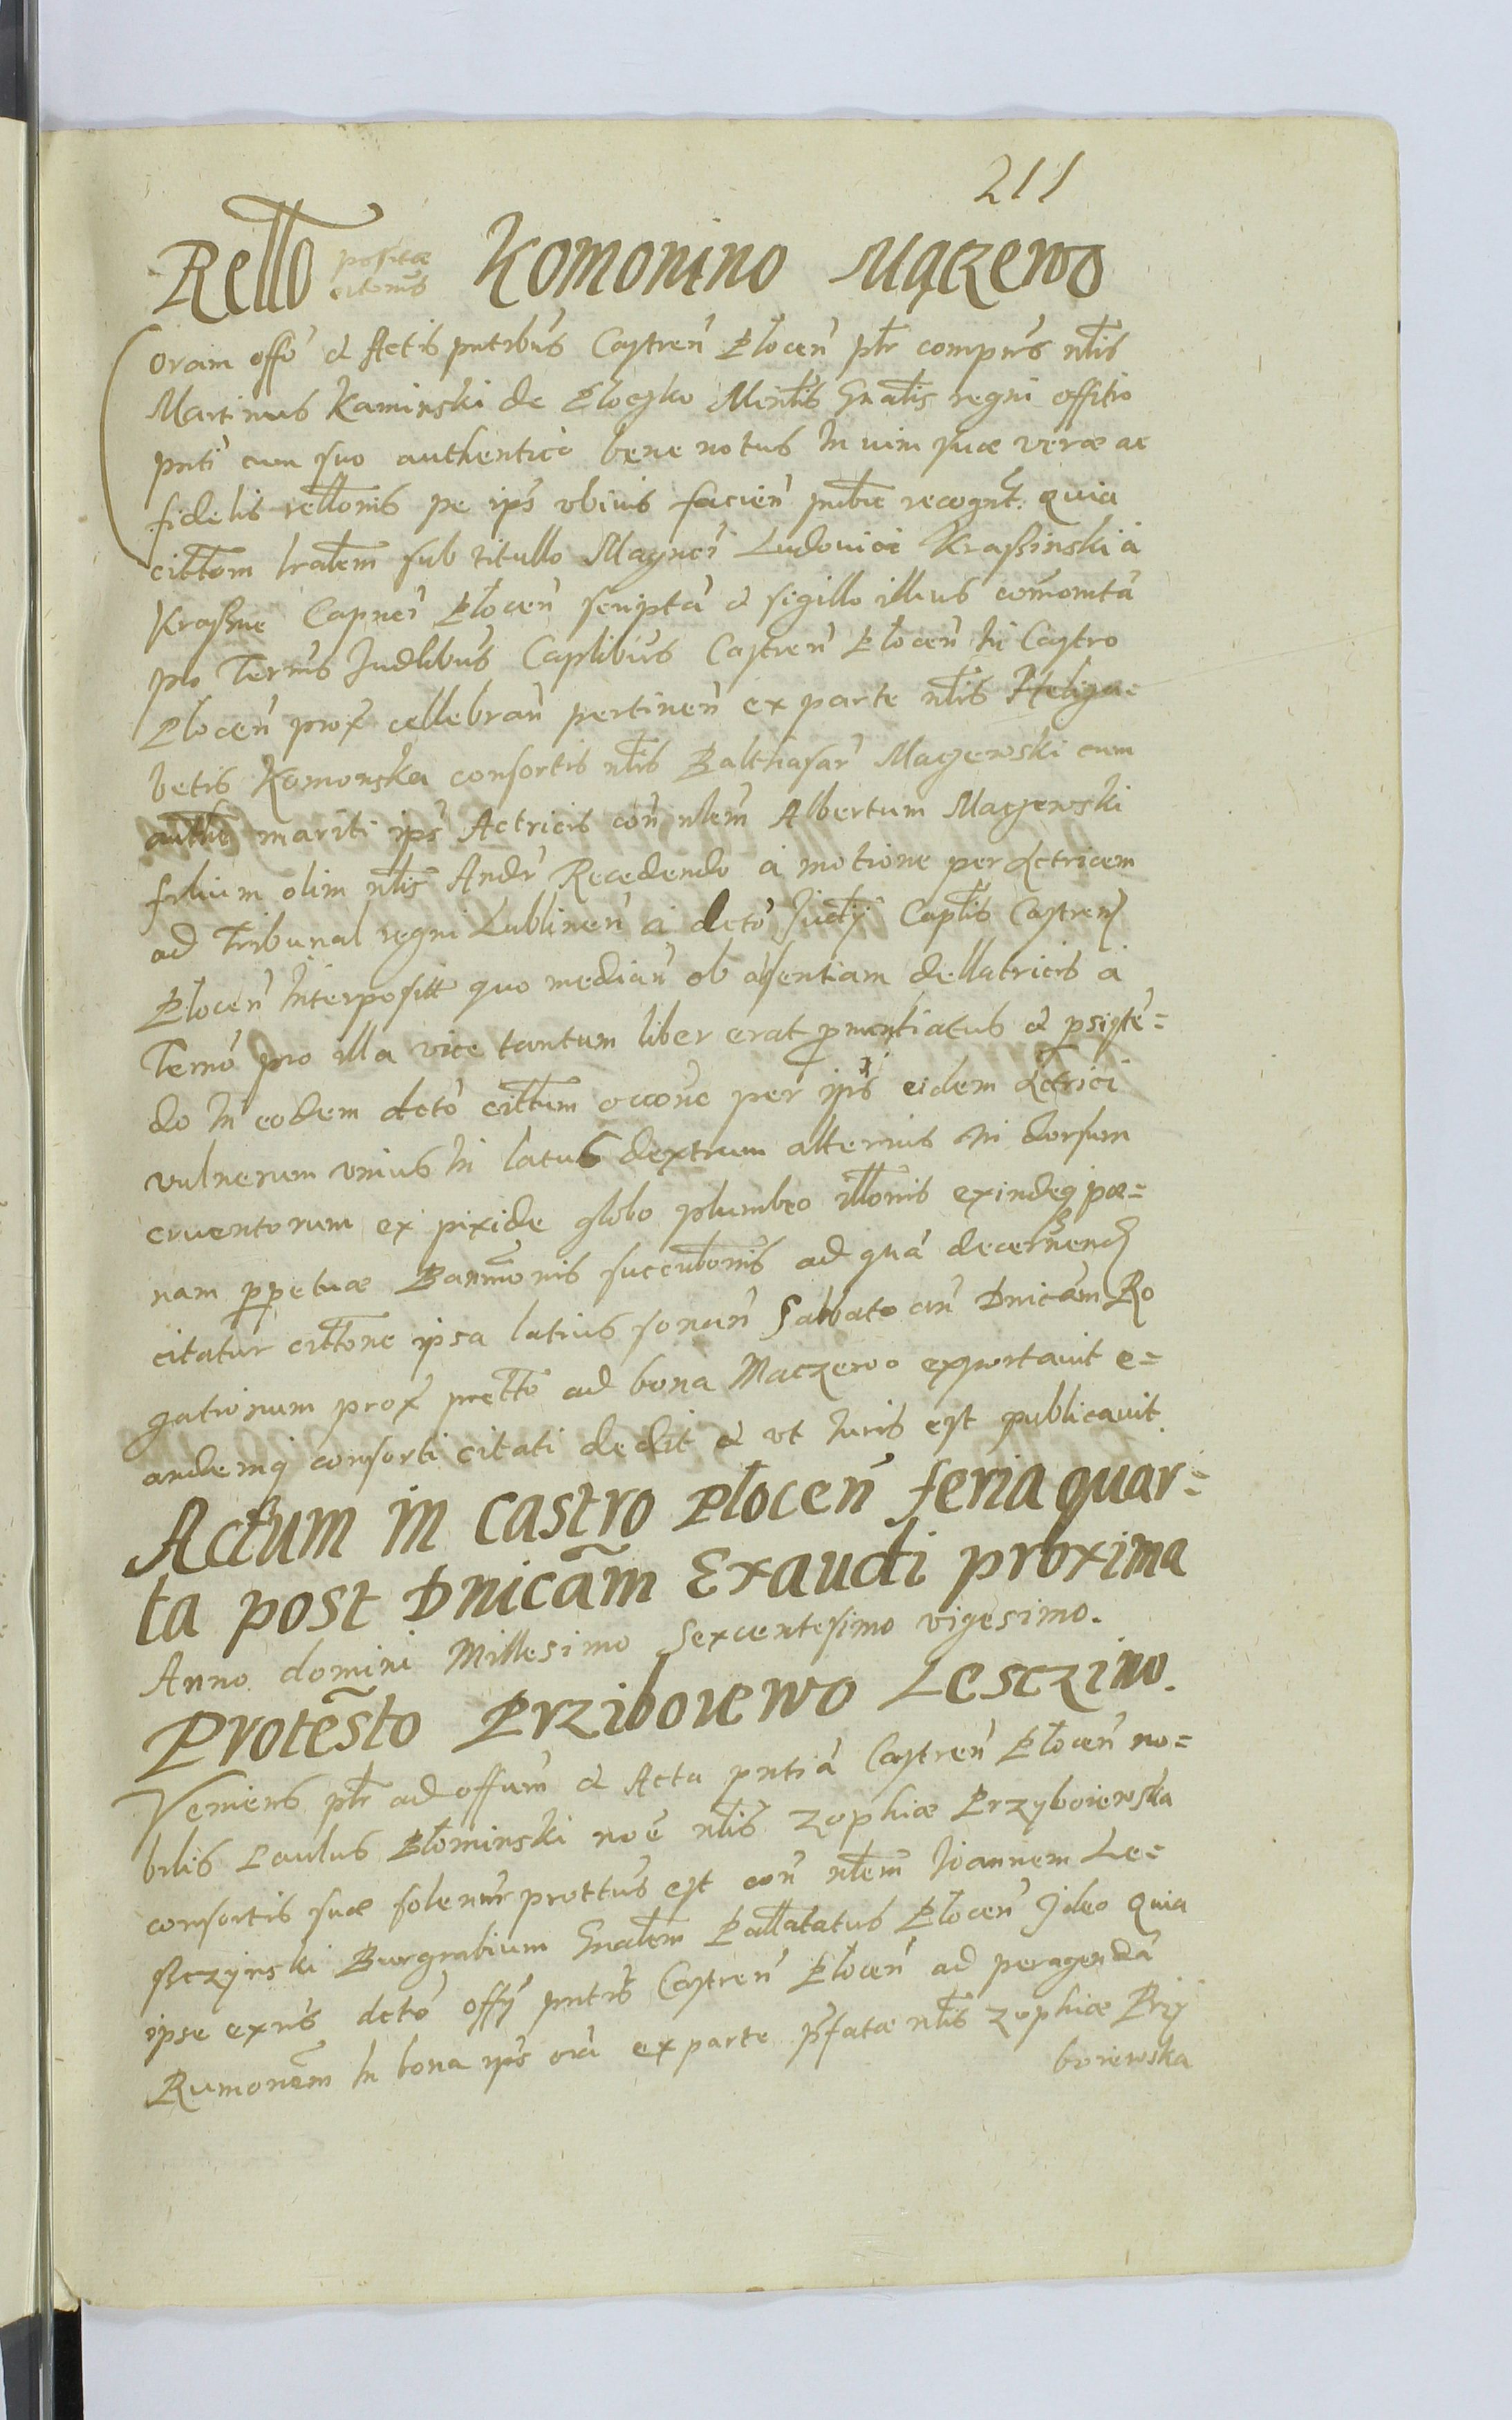 211
Rello positæ citonis Komonino Mączewo
Coram offo et Actis pntibus Castren Plocen plr comprns nlis
Martinus Kaminski de Ploczko Minlis Gnalis regni offitio
pnti cum suo authentico bene notus In uim suæ veræ ac
fidelis rellonis pe ips vbiuis facien publce recognt. quia
cittom lralem sub titullo Magnci Ludouici Kraßinski a
Kraßne Capnei Plocen scripta et sigillo illius comonita
pro Ternis Judlibus Caplibus Castren Plocen In Castro
Plocen prox cellebran pertinen ex parte nlis Heliza=
betis Komonska consortis nlis Balthasar Maczewski cum
authe mariti ips Actricis con nlem Albertum Maczewski
filium olim nlis Andr Recedendo a motione per Actricem
ad Tribunal regni Lublinen a dcto Judij Caplis Castren
Plocen Interposit quo median ob absentiam dellatricis a
Terno pro illa vice tantum liber erat pronuntiatus et psiste=
do In eodem dcto cittum occone per ips eidem Actrici
vulnerum vnius In latus dextrum alterius In dorsum
cruentorum ex pixide globo plumbeo illonis exindeq pæ=
nam perpetuæ Bannonis succubonis ad qua decernend
citatur cittone ipsa latius sonan Sabbato an Dnicam Ro
gationum prox pretto ad bona Maczewo exportauit e=
andemq consorti citati dedit et vt Iuris est publicauit.
Actum in Castro Plocen feria quar=
ta post Dnicam Exaudi proxima
Anno domini Millesimo Sexcentesimo vigesimo.
Protesto Prziboiewo Lesczino.
Veniens plr ad offum et Acta pntia Castren Plocen no=
bilis Paulus Plominski noe nlis Zophiæ Przyboiewska
consortis suæ solennr prottus est con nlem Joannem Le=
sczynski Burgrabium Gnalem Pallatatus Plocen Ideo quia
ipse exns dcto offij pntis Castren Plocen ad peragenda
Rumonem In bona ips ora ex parte pfatæ nlis Zophiæ Przy
boiewska